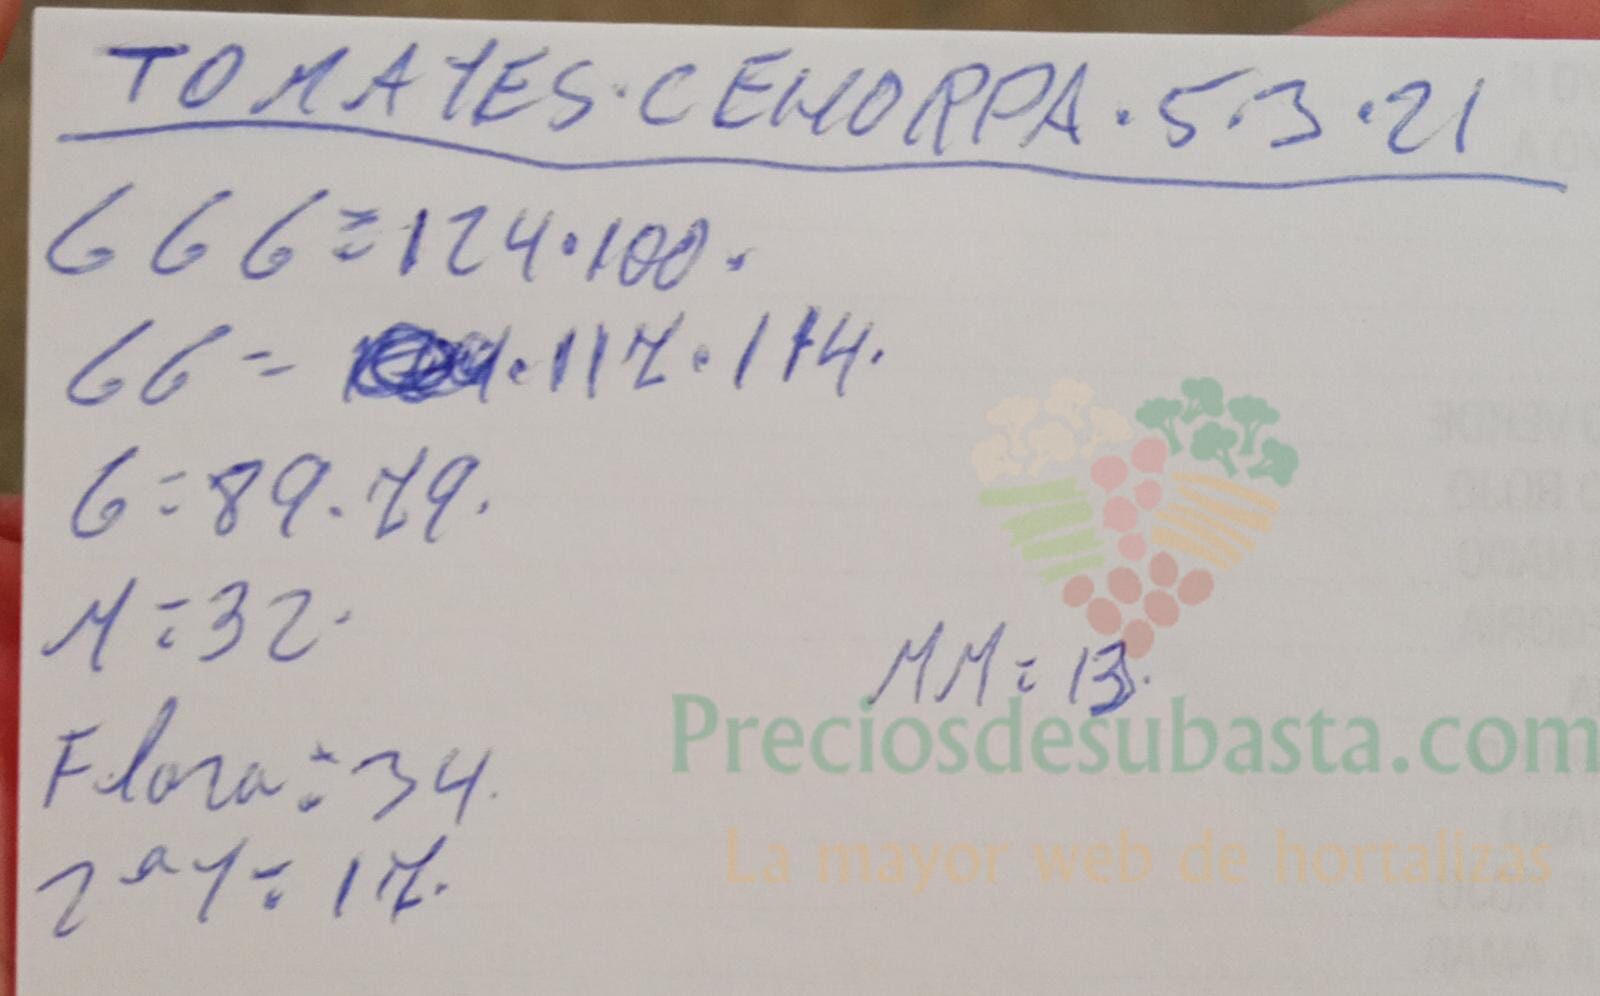 TOMATES·CEHORPA·5·3·21
GGG=124·100.
GG= ·117·114.
G=89.79.
M=32·
MM=13.
Flora=34.
2ª1=17.
Preciosdesubasta.com
La mayor web de hortalizas